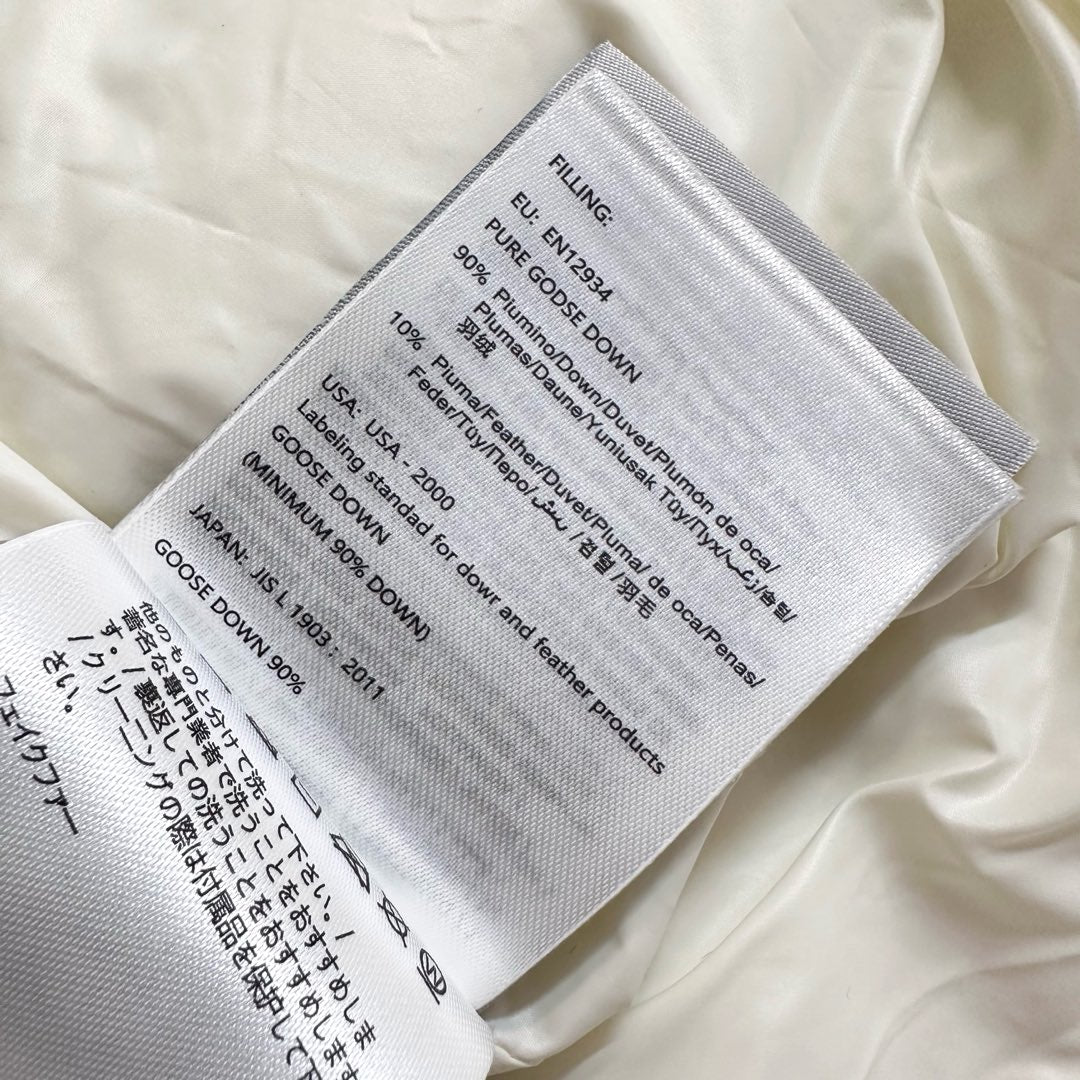 FILLING:
EU: EN12934
PURE GODSE DOWN
90% Plumino/Down/Duvet/Plumón de oca/
Plumas/Daune/Yuniusak Tüy/Пух/زغب/솜털/
羽绒
10% Pluma/Feather/Duvet/Pluma/ de oca/Penas/
Feder/Tüy/Перо/ريش/깃털/羽毛
USA: USA - 2000
Labeling standad for dowr and feather products
GOOSE DOWN
(MINIMUM 90% DOWN)
JAPAN: JIS L 1903 : 2011
GOOSE DOWN 90%
他のものと分けて洗って下さい。/
著名な専門業者で洗うことをおすすめしま
す。/裏返しての洗うことをおすすめします
/クリーニングの際は付属品を保護して下
さい。
フェイクファー